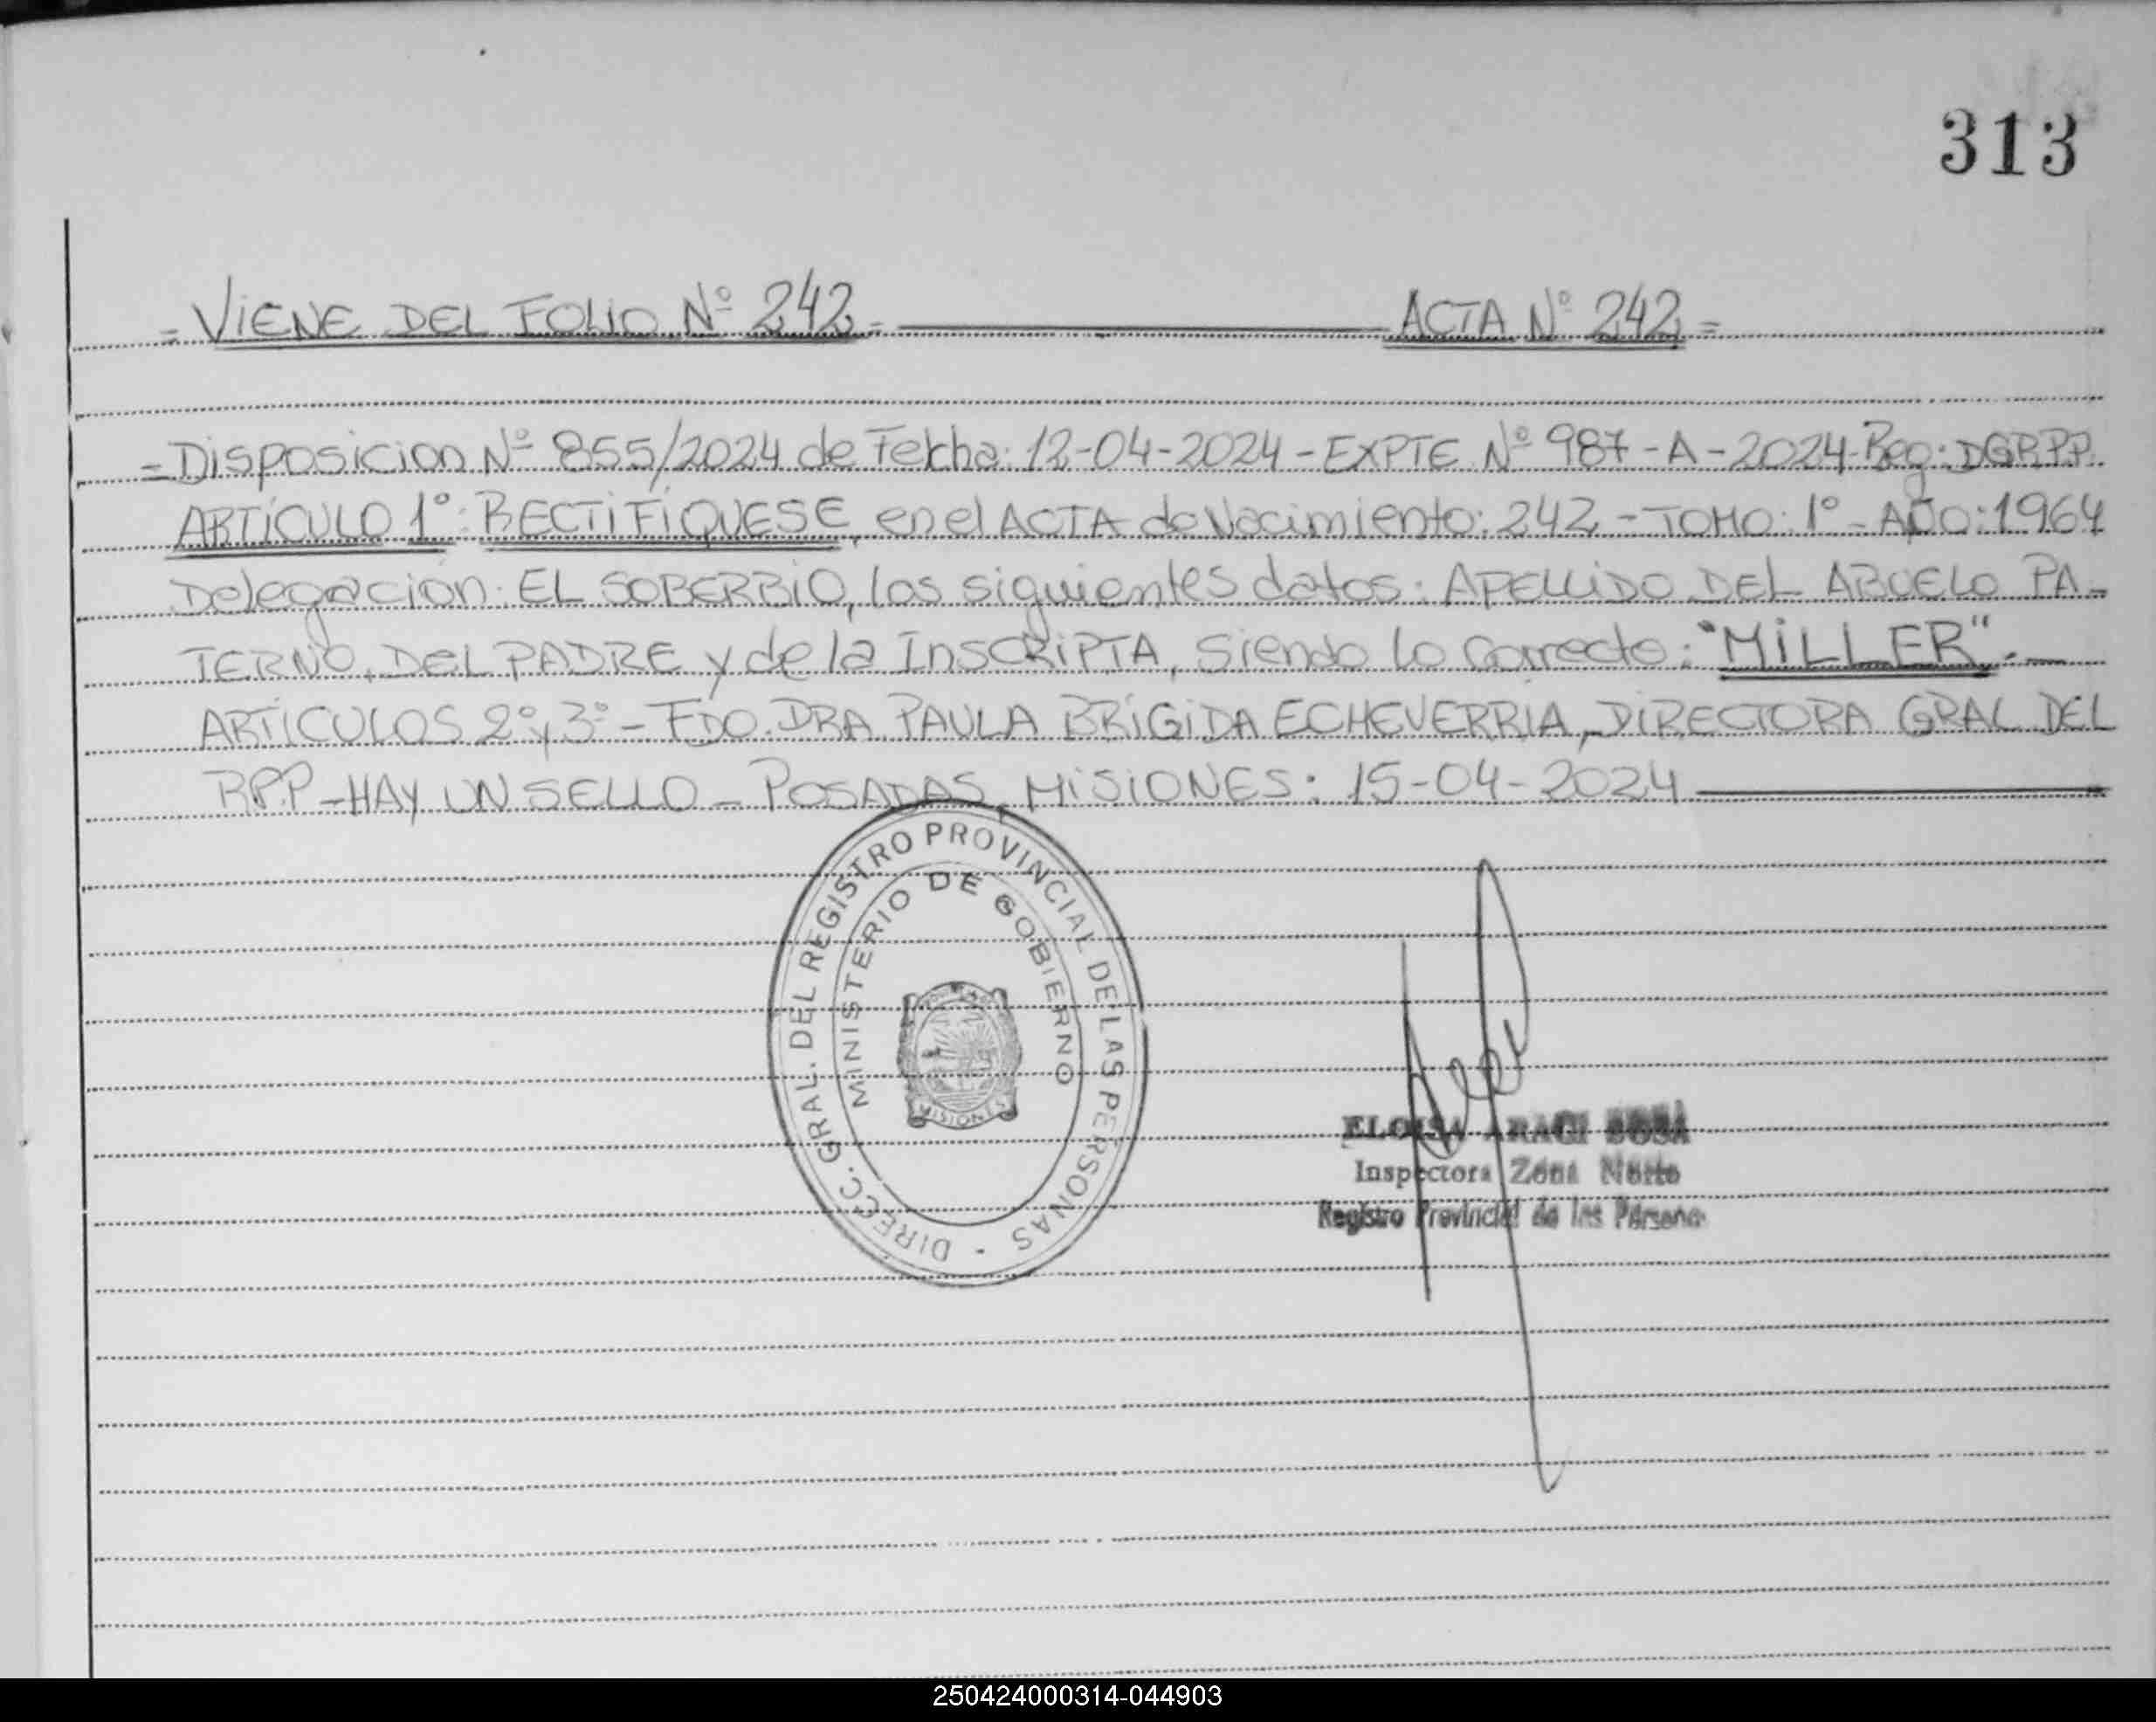 313
= VIENE DEL FOLIO Nº 242 = ACTA Nº 242 =
= Disposicion Nº 855/2024 de Fecha: 12-04-2024 - EXPTE Nº 987-A-2024-Reg: DGRPP.
ARTÍCULO 1º: RECTIFIQUESE, en el ACTA de Nacimiento: 242 - TOMO: 1º - AÑO: 1964
Delegación: EL SOBERBIO, los siguientes datos: APELLIDO DEL ABUELO PA-
TERNO, DEL PADRE y de la INSCRIPTA, siendo lo correcto: "MILLER".-
ARTICULOS 2º y 3º - FDO. DRA PAULA BRÍGIDA ECHEVERRIA, DIRECTORA GRAL DEL
RPP - HAY UN SELLO - POSADAS, MISIONES: 15-04-2024
DIRECC. GRAL. DEL REGISTRO PROVINCIAL DE LAS PERSONAS -
MINISTERIO DE GOBIERNO
MISIONES
ELOISA ARACI SOSA
Inspectora Zona Norte
Registro Provincial de las Personas
250424000314-044903